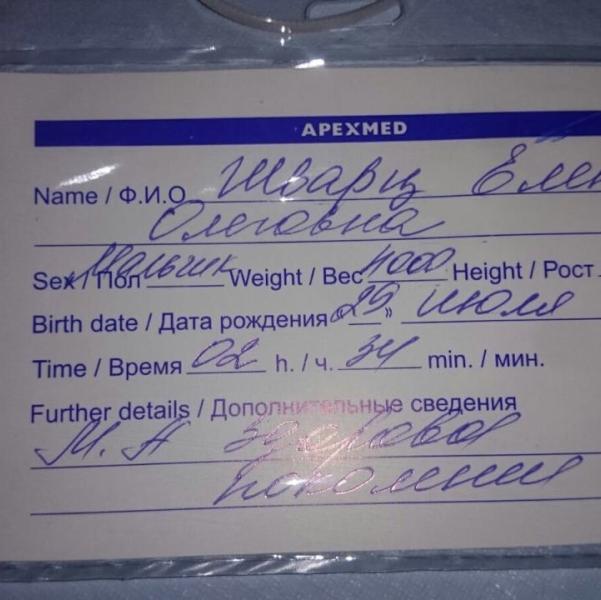 APEXMED
Name / Ф.И.О Шварц Ёлен
Олеговна
Sex / Пол Мальчик Weight / Вес 4000 Height / Рост
Birth date / Дата рождения «29» июля
Time / Время 02 h. / ч. 34 min. / мин.
Further details / Дополнительные сведения
М. А здоровое
поколение